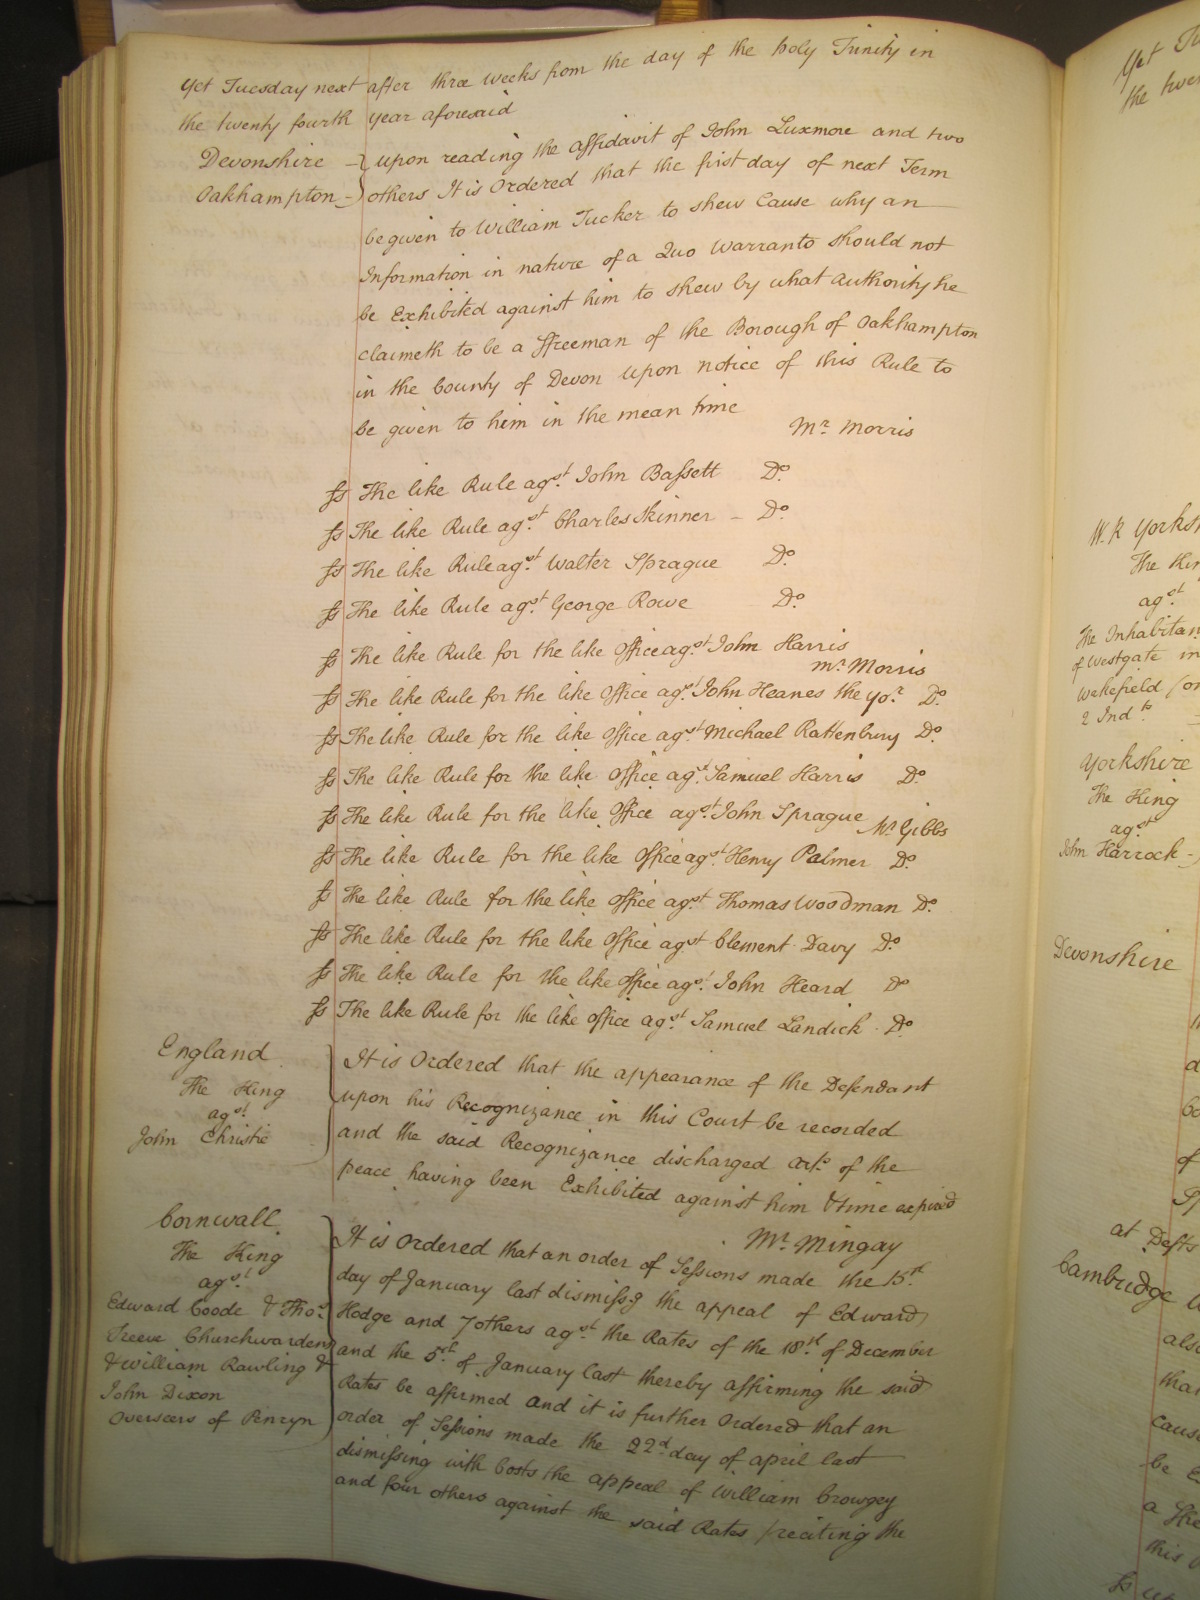 Yet Tuesday next after three weeks from the day of the holy Trinity in
the twenty fourth year aforesaid
Devonshire
Oakhampton
upon reading the affidavit of John Luxmore and two
others It is Ordered that the first day of next Term
be given to William Tucker to shew Cause why an
Information in nature of a Quo Warranto should not
be Exhibited against him to shew by what authority he
claimeth to be a ffreeman of the Borough of Oakhampton
in the County of Devon upon notice of this Rule to
be given to him in the mean time
Mr. Morris
ſs The like Rule agst. John Baſsett Do.
ſs The like Rule agst. Charles Skinner – Do.
ſs The like Rule agst. Walter Sprague Do.
ſs The like Rule agst. George Rowe Do.
ſs The like Rule for the like Office agst. John Harris
Mr. Morris
ſs The like Rule for the like Office agst. John Heanes the yor. Do.
ſs The like Rule for the like Office agst. Michael Rattenbury Do.
ſs The like Rule for the like Office agst. Samuel Harris Do.
ſs The like Rule for the like Office agst. John Sprague
Mr. Gibbs
ſs The like Rule for the like Office agst. Henry Palmer Do.
ſs The like Rule for the like Office agst. Thomas Woodman Do.
ſs The like Rule for the like Office agst. Clement Davy Do.
ſs The like Rule for the like Office agst. John Heard Do
ſs The like Rule for the like Office agst. Samuel Landick Do.
England
The King
agst.
John Christie
It is Ordered that the appearance of the Defendant
upon his Recognizance in this Court be recorded
and the said Recognizance discharged arts. of the
peace having been Exhibited against him & time expired
Mr. Mingay
Cornwall
The King
agst.
Edward Coode & Thos.
Treeve Churchwardens
& William Rawling &
John Dixon
Overseers of Penryn
It is Ordered that an order of Seſsions made the 15th.
day of January last dismiſsg the appeal of Edward
Hodge and 7 others agst. the Rates of the 18th. of December
and the 5th. of January last thereby affirming the said
Rates be affirmed and it is further Ordered that an
order of Seſsions made the 22d. day of april last
dismiſsing with Costs the appeal of William Crowgey
and four others against the said Rates reciting the
W. R Yorks
The Kin
agst.
The Inhabitan
of Westgate in
Wakefield (on
2 Indts.
Yorkshire
The King
agst.
John Harrock
Devonshire
at Defts
Cambridge
also
that
cause
be E
this